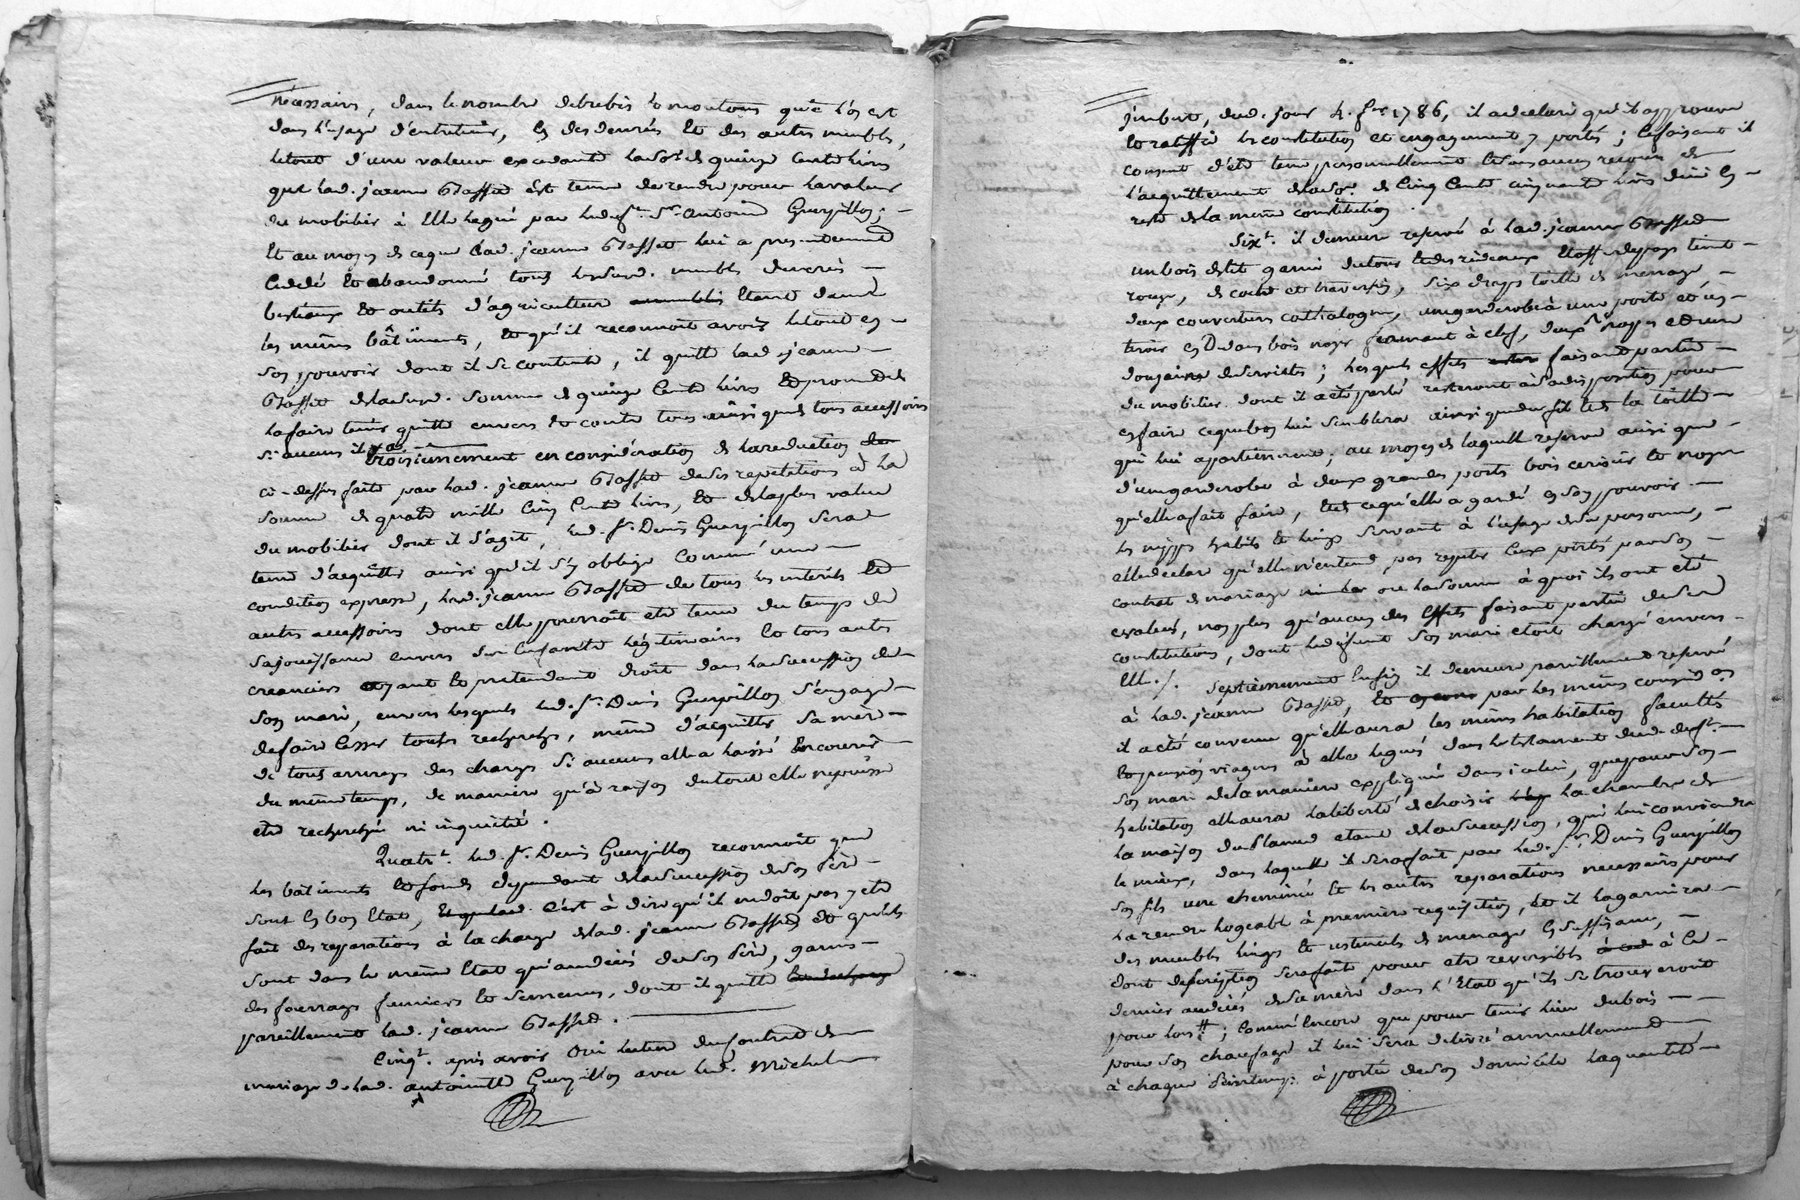 necessaires, dans le nombre de brebis et moutons qu'e l'on est
dans l'usage d'entretenir, les des denrées et des autres meubles,
le tout d'une valeur excedante lad. so.e de quinze cents livres
que lad. jeanne Stassed est tenue de rendre pour la valeur
du mobilier à Elle legué par led. f.t S.r antoine Guerpillon; —
Et au moyen de ce que lad. jeanne Stassed lui a presentement
Cedé et abandonné tous lesdusd. meubles denrées —
bestiaux et outils d'agriculture Etant dans
les mêmes bâtiments, et qu'il reconnoit avoir le tout en —
son pouvoir dont il se contente, il quitte lad. jeanne —
Stassed de lasusd. somme de quinze Cents livres et promet de
la faire tenir quitte envers et contre tous ainsi que de tous accessoires
si aucuns il y a.
troisiemement en considération de la reduction
ci-dessus faite par lad. jeanne Stassed de ses repetitions à la
somme de quatre mille Cinq Cents livres, et de la plus value
du mobilier dont il s'agit, led. S.r Denis Guerpillon sera
tenu d'acquitter ainsi qu'il s'y oblige comme une —
condition expresse, lad. jeanne Stassed de tous les interets et
autres accessoires dont elle pourroit etre tenue du temps de
sa jouissance envers ses Enfants légitimaires et tous autres
creanciers ayant et pretendant droit dans la succession de
son mari, envers lesquels led. S.r Denis Guerpillon s'engage —
de faire Cesser toutes recherches, même d'acquitter sa mere —
de tous arrerages des charges si aucunes elle a laissé Encourir —
du même temps, de maniere qu'à raison du tout elle ne puisse
etre recherchée ni inquietée.
Quatr.t led. S.r Denis Guerpillon reconnoit que
les bâtiments et fonds dependant de la succession de son Père —
sont En bon Etat, c'est à dire qu'il ne doit pas y etre
fait des reparations à la charge de lad. jeanne Stassed et qu'ils
sont dans le même Etat qu'au decès de son Père, garnis —
des fourrages fumiers et semences, dont il quitte
pareillement lad. jeanne Stassed. —
Cinq.t après avoir Oui lecture du contrat de
mariage de lad. antoinette Guerpillon avec led. Michel
jmbert, dud. jour 4. f.er 1786, il a declaré qu'il approuve
et ratiffie les constitution et engagement y portés; Ce faisant il
consent d'etre tenu personnellement et sans aucun recours de
l'acquittement de la so.e de Cinq Cents cinquante livres dûe En —
reste de la même constitution.
Six.t il demeure reservé à lad. jeanne Stassed
un bois de lit garni de tour et des rideaux Etoffe du pays teint —
rouge, de coitre et traversin, six draps toille de menage —
deux couvertures catalogne, une garderobe à une porte et un —
tiroir En Dedans bois noyer fermant à clef, deux nappes et une
douzaine de serviettes; lesquels effets faisant partie
du mobilier dont il a été parlé resteront à sa disposition pour
en faire ce que bon lui semblera ainsi que du fil et de la toille —
qui lui appartiennent; au moyen de laquelle reserve ainsi que —
d'une garderobe à deux grandes portes bois cerisier et noyer
qu'elle a fait faire, et de ce qu'elle a gardé en son pouvoir —
les nippes habits et linges servant à l'usage de sa personne, —
elle declare qu'elle n'entend pas repeter Ceux portés par son —
contrat de mariage ni la somme à quoi ils ont eté
evalués, non plus qu'aucun des Effets faisant partie de sa
constitution, dont led. defunt son mari etoit chargé envers —
Elle./. Septièmement Enfin il demeure pareillement reservé
à lad. jeanne Stassed, et par les mêmes considérations
il a été convenu qu'elle aura les mêmes habitation facultés
et pension viagere à elle legués dans le testament dud. deff.t —
son mari de la maniere expliquée dans icelui, que pour son —
habitation elle aura la liberté de choisir la chambre de
la maison du planu etant de la succession, qui lui conviendra
le mieux, dans laquelle il sera fait par led. S.r Denis Guerpillon
son fils une cheminée et les autres reparations necessaires pour
la rendre logeable à première requisition, et il la garnira —
des meubles linges et ustensils de menage En suffisance, —
dont description sera faite pour etre reversibles à ce —
dernier au decès de sa mère dans l'Etat qu'ils se trouveront
pour lors; comm'encore que pour tenir lieu du bois —
pour son chauffage il lui sera délivré annuellement
à chaque printemps à portée de son domicile la quantité —